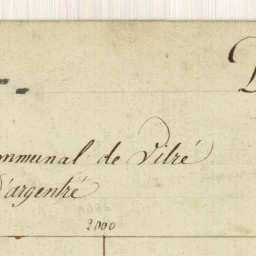 ommunal de Vitré
d'argentré
2000